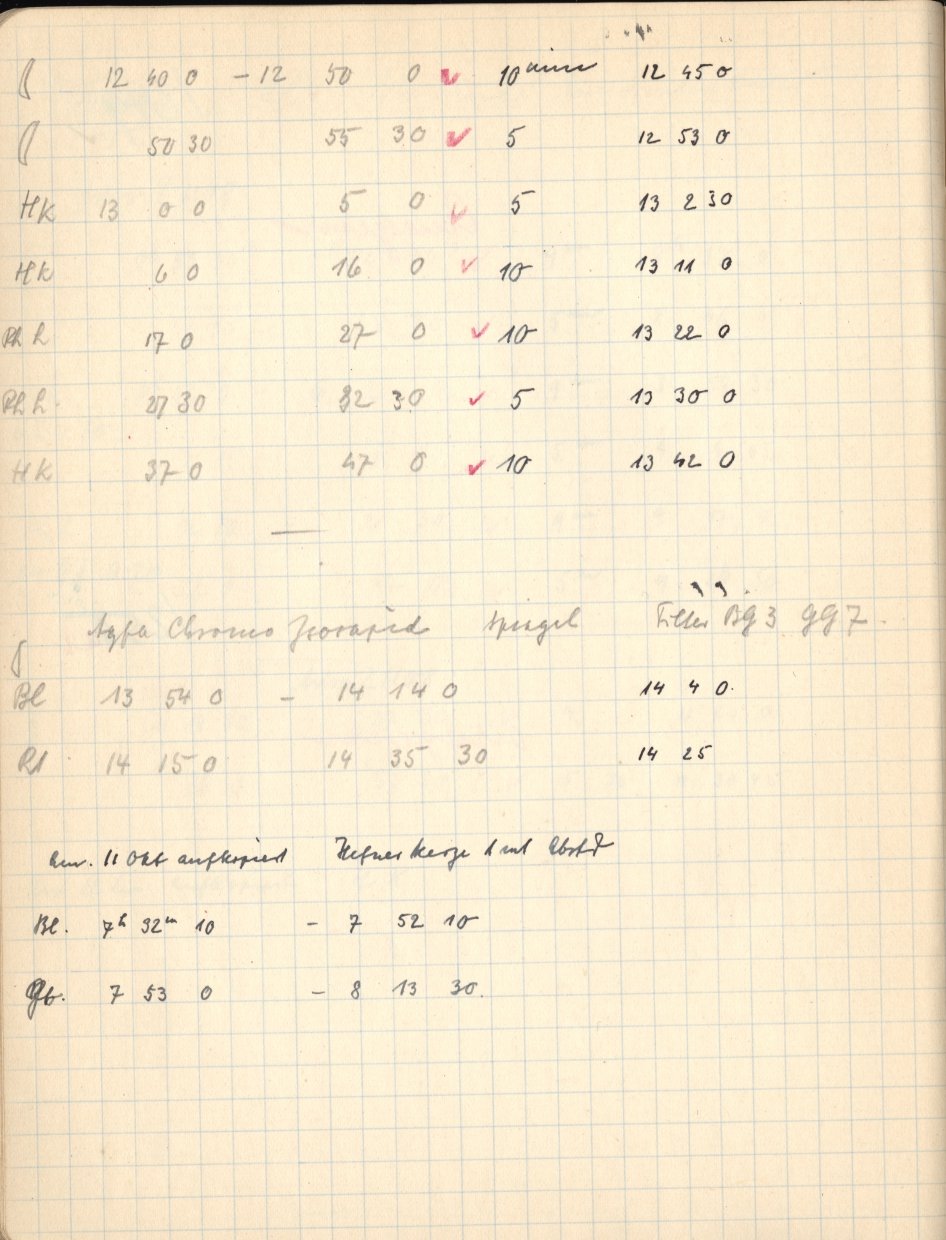 12 40 0 – 12 50 0 ✓ 10 min 12 45 0
50 30 55 30 ✓ 5 12 53 0
HK 13 0 0 5 0 ✓ 5 13 2 30
HK 6 0 16 0 ✓ 10 13 11 0
Ph h 17 0 27 0 ✓ 10 13 22 0
Ph h 27 30 32 30 ✓ 5 13 30 0
HK 37 0 47 0 ✓ 10 13 42 0
Agfa Chromo Isorapid Spiegel Filter BG 3 GG 7
Bl 13 54 0 – 14 14 0 14 4 0
14 15 0 14 35 30 14 25
am. 11 Okt aufkopiert Hefner Kerze 1 m Abstd
Bl. 7h 32m 10 – 7 52 10
Gb. 7 53 0 – 8 13 30